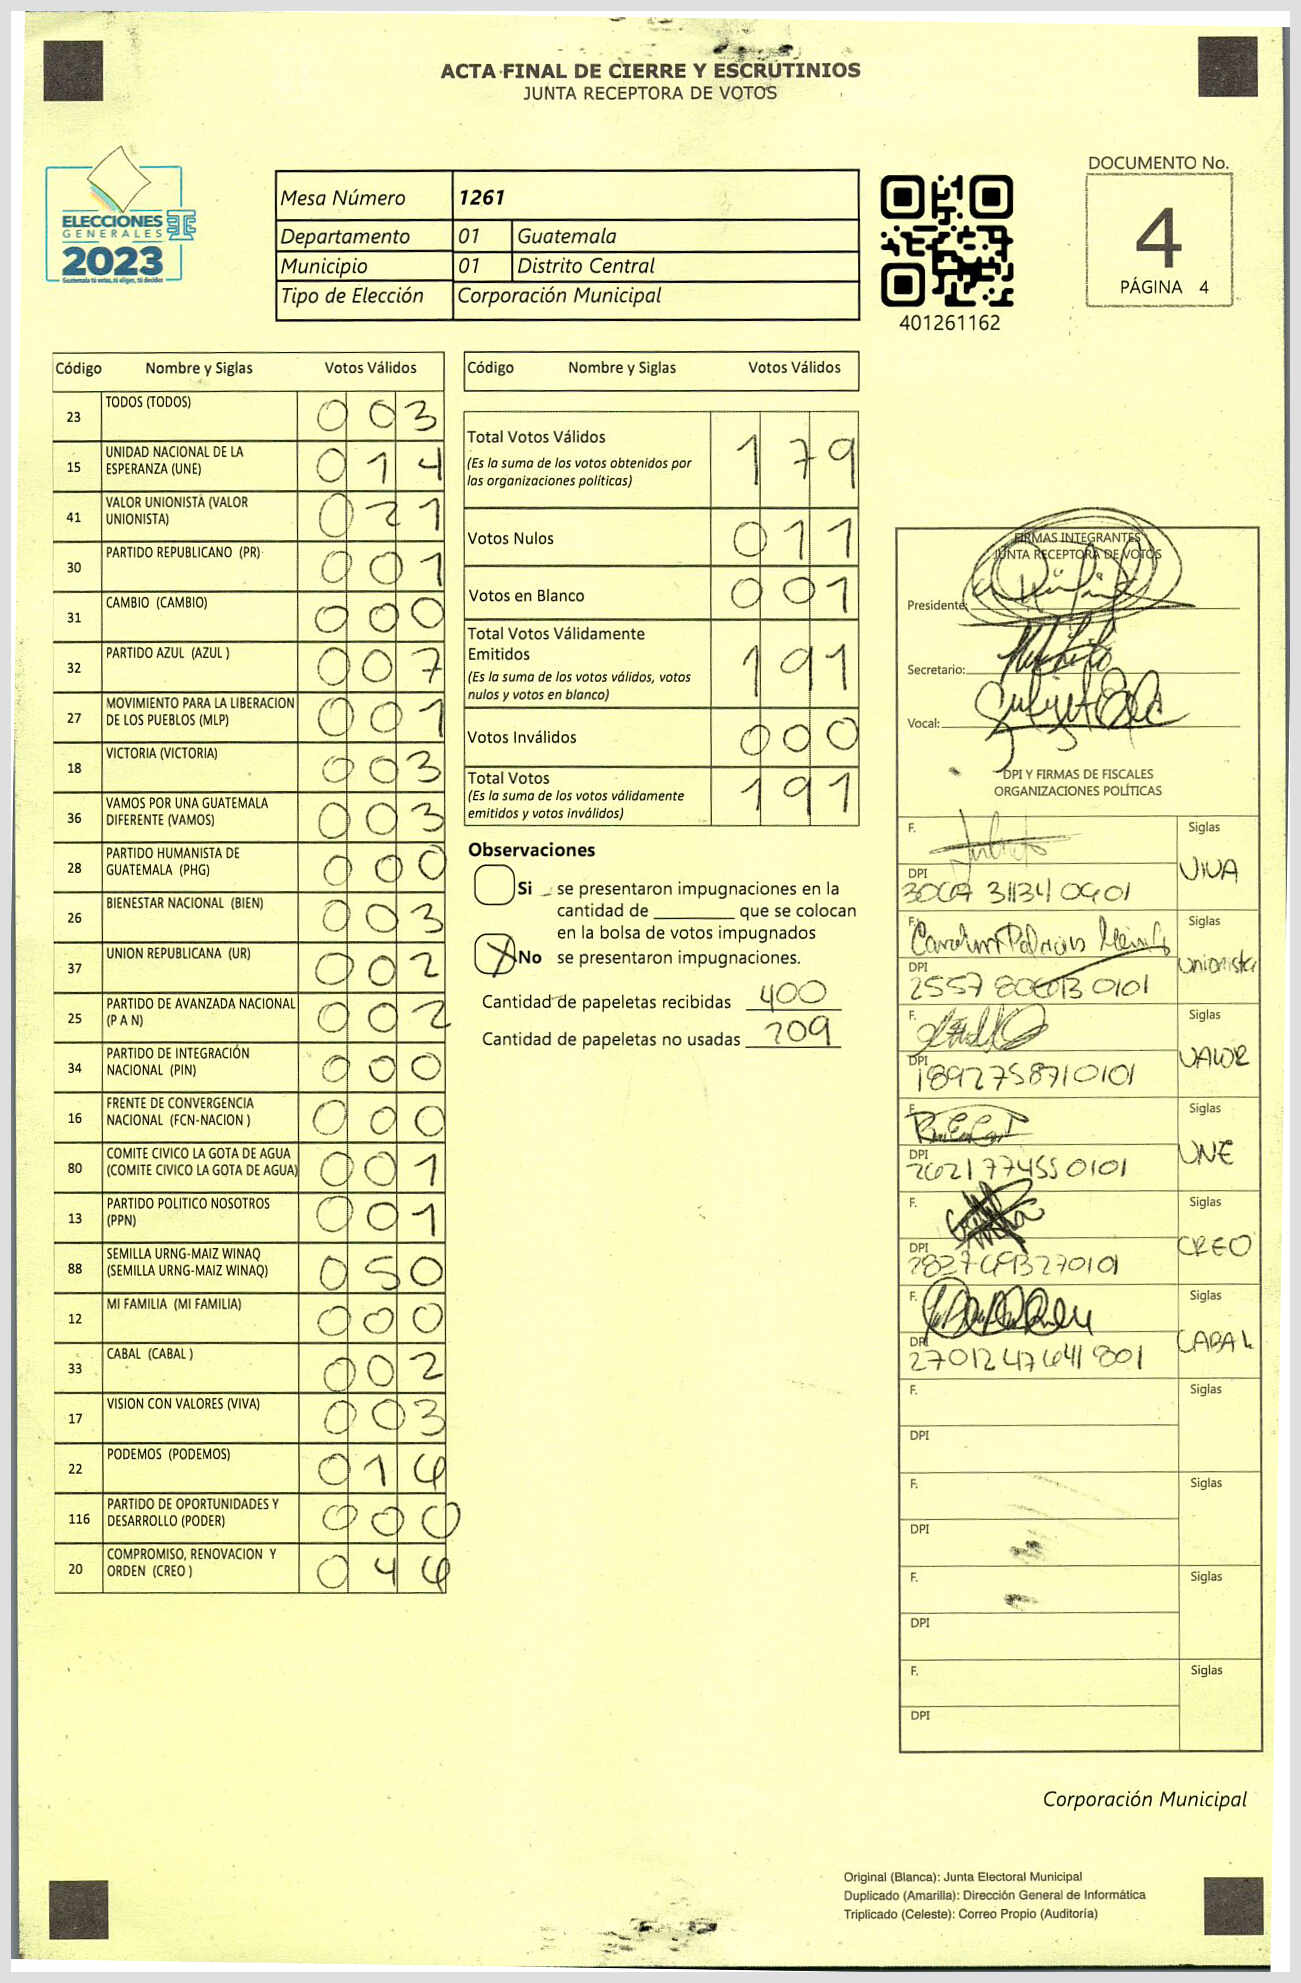 ACTA FINAL DE CIERRE Y ESCRUTINIOS
JUNTA RECEPTORA DE VOTOS
ELECCIONES
GENERALES
2023
Guatemala tú votas, tú eliges, tú decides
Mesa Número 1261
Departamento 01 Guatemala
Municipio 01 Distrito Central
Tipo de Elección Corporación Municipal
401261162
DOCUMENTO No.
4
PÁGINA 4
Código Nombre y Siglas Votos Válidos
23 TODOS (TODOS) 0 0 3
15 UNIDAD NACIONAL DE LA
ESPERANZA (UNE) 0 1 4
41 VALOR UNIONISTA (VALOR
UNIONISTA) 0 2 1
30 PARTIDO REPUBLICANO (PR) 0 0 1
31 CAMBIO (CAMBIO) 0 0 0
32 PARTIDO AZUL (AZUL ) 0 0 7
27 MOVIMIENTO PARA LA LIBERACION
DE LOS PUEBLOS (MLP) 0 0 1
18 VICTORIA (VICTORIA) 0 0 3
36 VAMOS POR UNA GUATEMALA
DIFERENTE (VAMOS) 0 0 3
28 PARTIDO HUMANISTA DE
GUATEMALA (PHG) 0 0 0
26 BIENESTAR NACIONAL (BIEN) 0 0 3
37 UNION REPUBLICANA (UR) 0 0 2
25 PARTIDO DE AVANZADA NACIONAL
(P A N) 0 0 2
34 PARTIDO DE INTEGRACIÓN
NACIONAL (PIN) 0 0 0
16 FRENTE DE CONVERGENCIA
NACIONAL (FCN-NACION ) 0 0 0
80 COMITE CIVICO LA GOTA DE AGUA
(COMITE CIVICO LA GOTA DE AGUA) 0 0 1
13 PARTIDO POLITICO NOSOTROS
(PPN) 0 0 1
88 SEMILLA URNG-MAIZ WINAQ
(SEMILLA URNG-MAIZ WINAQ) 0 5 0
12 MI FAMILIA (MI FAMILIA) 0 0 0
33 CABAL (CABAL ) 0 0 2
17 VISION CON VALORES (VIVA) 0 0 3
22 PODEMOS (PODEMOS) 0 1 4
116 PARTIDO DE OPORTUNIDADES Y
DESARROLLO (PODER) 0 0 0
20 COMPROMISO, RENOVACION Y
ORDEN (CREO ) 0 4 4
Código Nombre y Siglas Votos Válidos
Total Votos Válidos 1 7 9
(Es la suma de los votos obtenidos por
las organizaciones políticas)
Votos Nulos 0 1 1
Votos en Blanco 0 0 1
Total Votos Válidamente
Emitidos 1 9 1
(Es la suma de los votos válidos, votos
nulos y votos en blanco)
Votos Inválidos 0 0 0
Total Votos 1 9 1
(Es la suma de los votos válidamente
emitidos y votos inválidos)
Observaciones
Si se presentaron impugnaciones en la
cantidad de ________ que se colocan
en la bolsa de votos impugnados
X No se presentaron impugnaciones.
Cantidad de papeletas recibidas 400
Cantidad de papeletas no usadas 209
FIRMAS INTEGRANTES
JUNTA RECEPTORA DE VOTOS
Presidente:
Secretario:
Vocal:
DPI Y FIRMAS DE FISCALES
ORGANIZACIONES POLÍTICAS
F. Siglas
VIVA
DPI
F. Siglas
Unionista
DPI
F. Siglas
VALOR
DPI
1892758710101
F. Siglas
UNE
DPI
2621774550101
F. Siglas
CREO
DPI
F. Siglas
CABAL
DPI
F. Siglas
DPI
F. Siglas
DPI
F. Siglas
DPI
F. Siglas
DPI
Corporación Municipal
Original (Blanca): Junta Electoral Municipal
Duplicado (Amarilla): Dirección General de Informática
Triplicado (Celeste): Correo Propio (Auditoría)